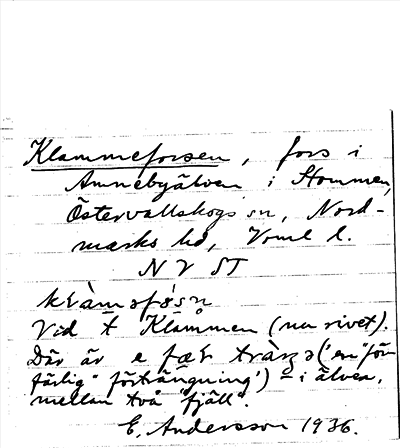 Klammeforsen, fors i
Annebyälven i Hommen,
Östervallskogs sn, Nord-
marks hd, Vrml l.
N V ST
Vid t Klammen (nu rivet).
Där är e fær tràŋʒə ('en "för-
färlig" förträngning') – i älven,
mellan två "fjäll".
E. Andersson 1936.